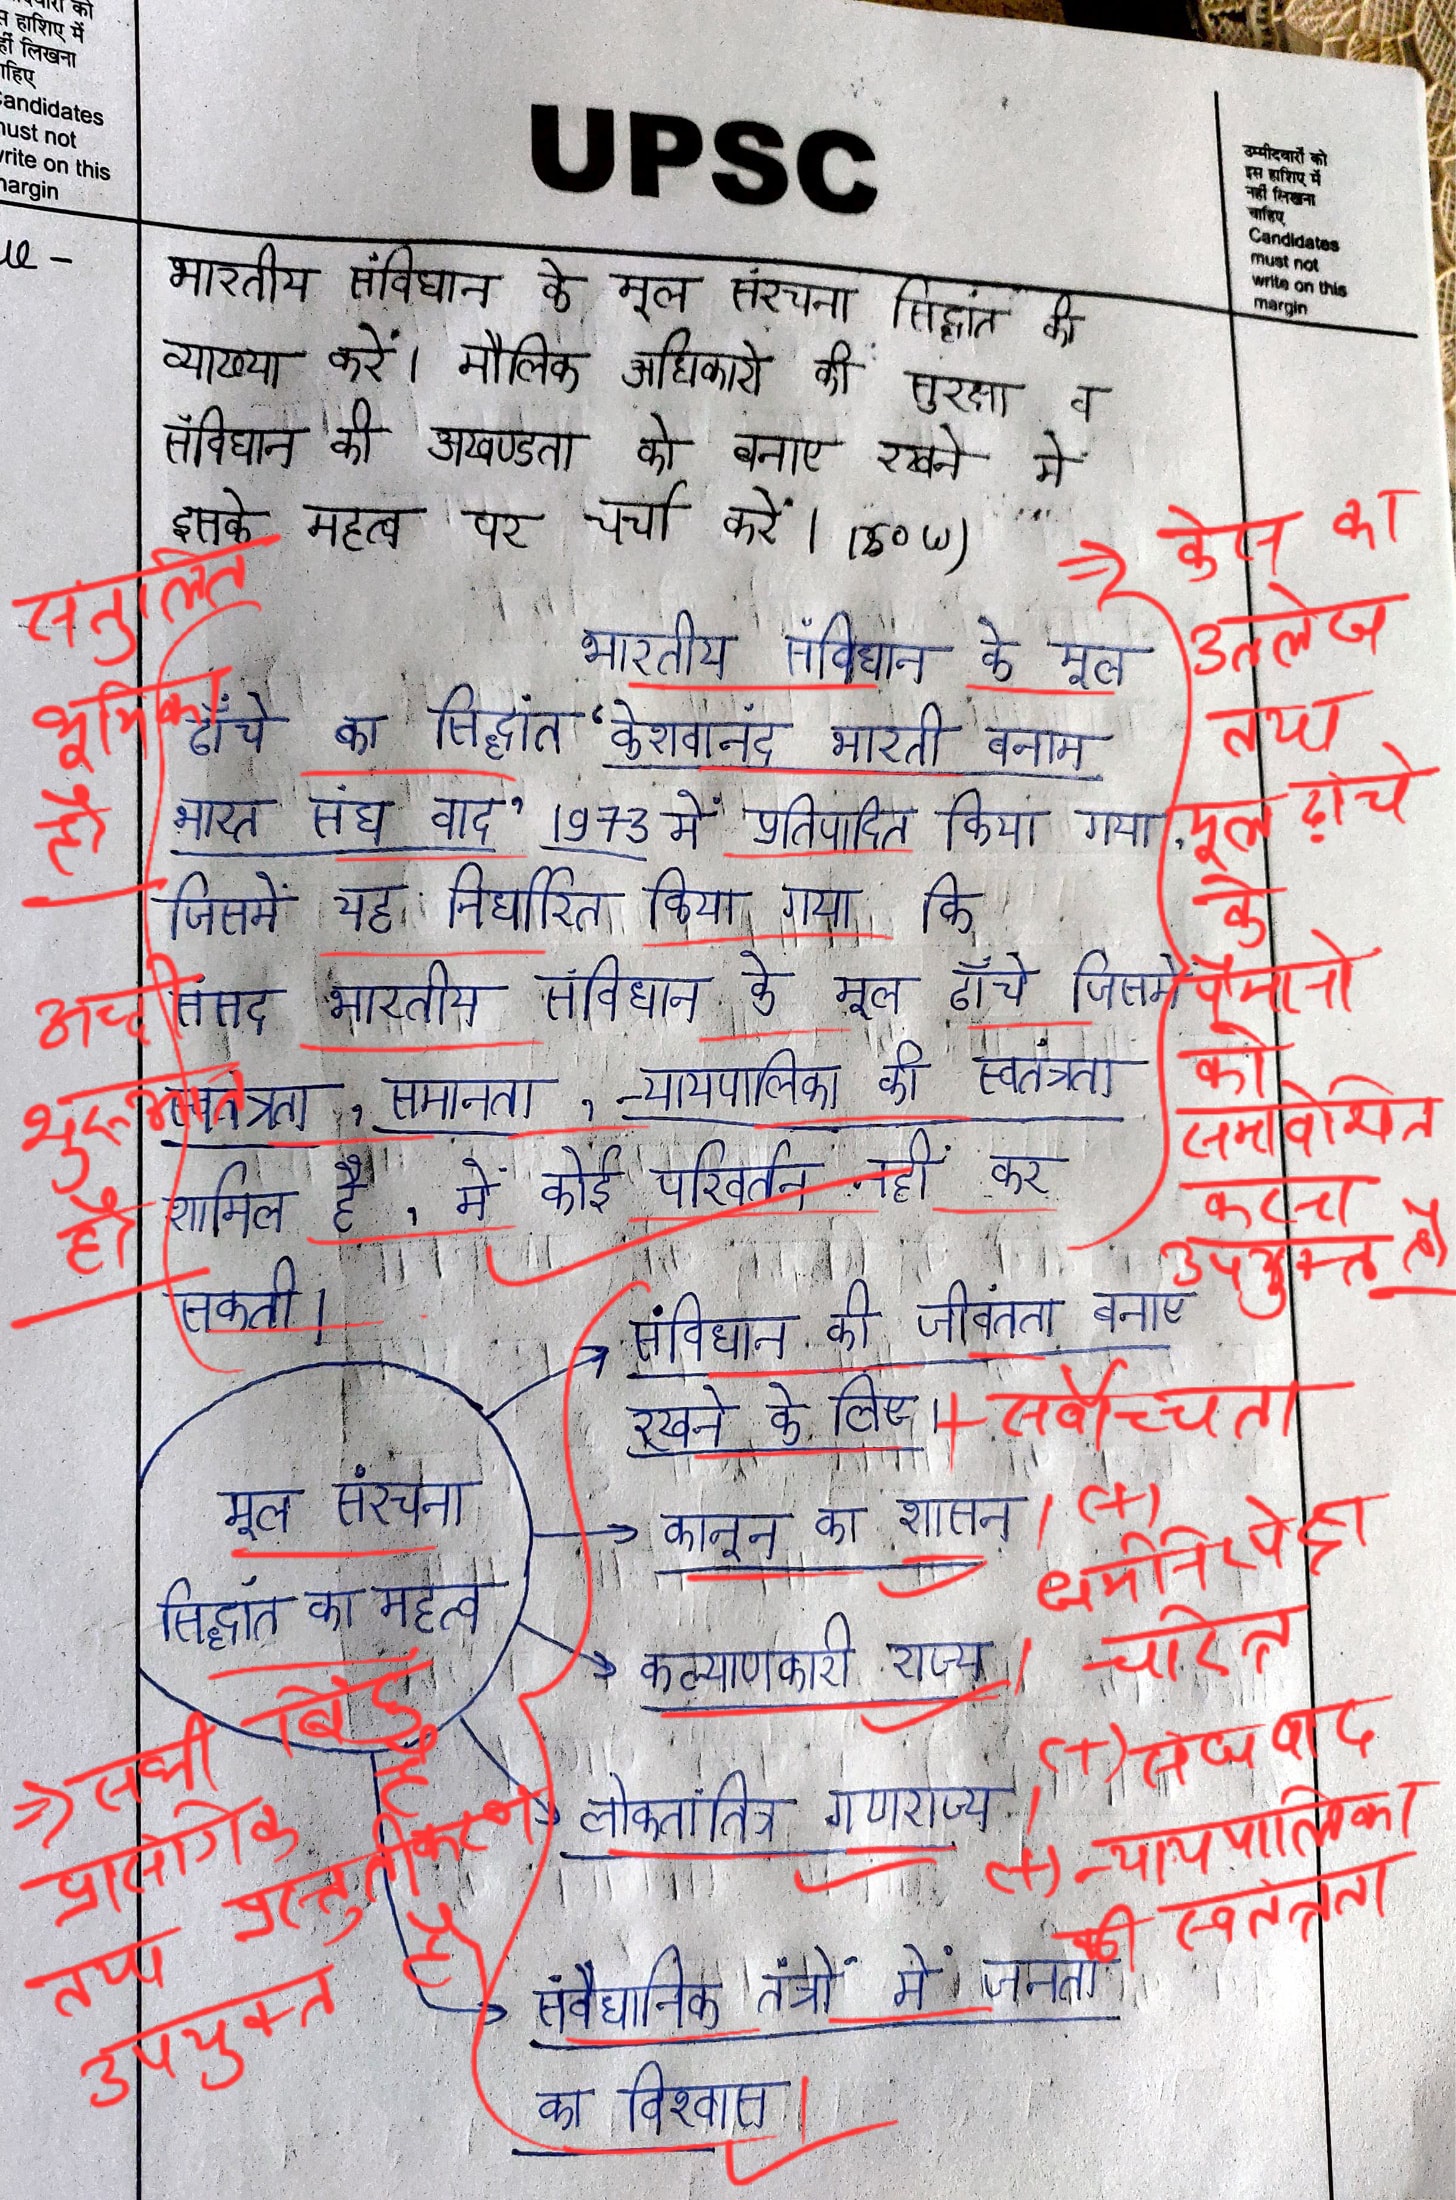 उम्मीदवारों को
इस हाशिए में
नहीं लिखना
चाहिए
Candidates
must not
write on this
margin
UPSC
उम्मीदवारों को
इस हाशिए में
नहीं लिखना
चाहिए
Candidates
must not
write on this
margin
भारतीय संविधान के मूल संरचना सिद्धांत की
व्याख्या करें। मौलिक अधिकारो की सुरक्षा व
संविधान की अखण्डता को बनाए रखने मे
इसके महत्व पर चर्चा करें। (150 W)
भारतीय संविधान के मूल
ढाँचे का सिद्धांत 'केशवानंद भारती बनाम
भारत संघ वाद' 1973 में प्रतिपादित किया गया,
जिसमें यह निर्धारित किया गया कि
संसद भारतीय संविधान के मूल ढाँचे जिसमें
स्वतंत्रता, समानता, न्यायपालिका की स्वतंत्रता
शामिल है, में कोई परिवर्तन नहीं कर
सकती।
सन्तुलित
भूमिका
है
अच्छी
शुरूआत
है
⇒ केस का
उल्लेख
तथा
मूल ढ़ांचे
के
पैमानो
को
समावेशित
करना
उपयुक्त है
मूल संरचना
सिद्धांत का महत्व
संविधान की जीवंतता बनाए
रखने के लिए। + सर्वोच्चता
कानून का शासन। (+)
धर्मनिरपेक्ष
कल्याणकारी राज्य। चरित्र
(+) संघवाद
लोकतांत्रित्र गणराज्य।
(+) न्यायपालिका
की स्वतंत्रता
संवैधानिक तंत्रों में जनता
का विश्वास।
⇒ सभी बिंदु
प्रासंगिक है
तथा प्रस्तुतीकरण
उपयुक्त है